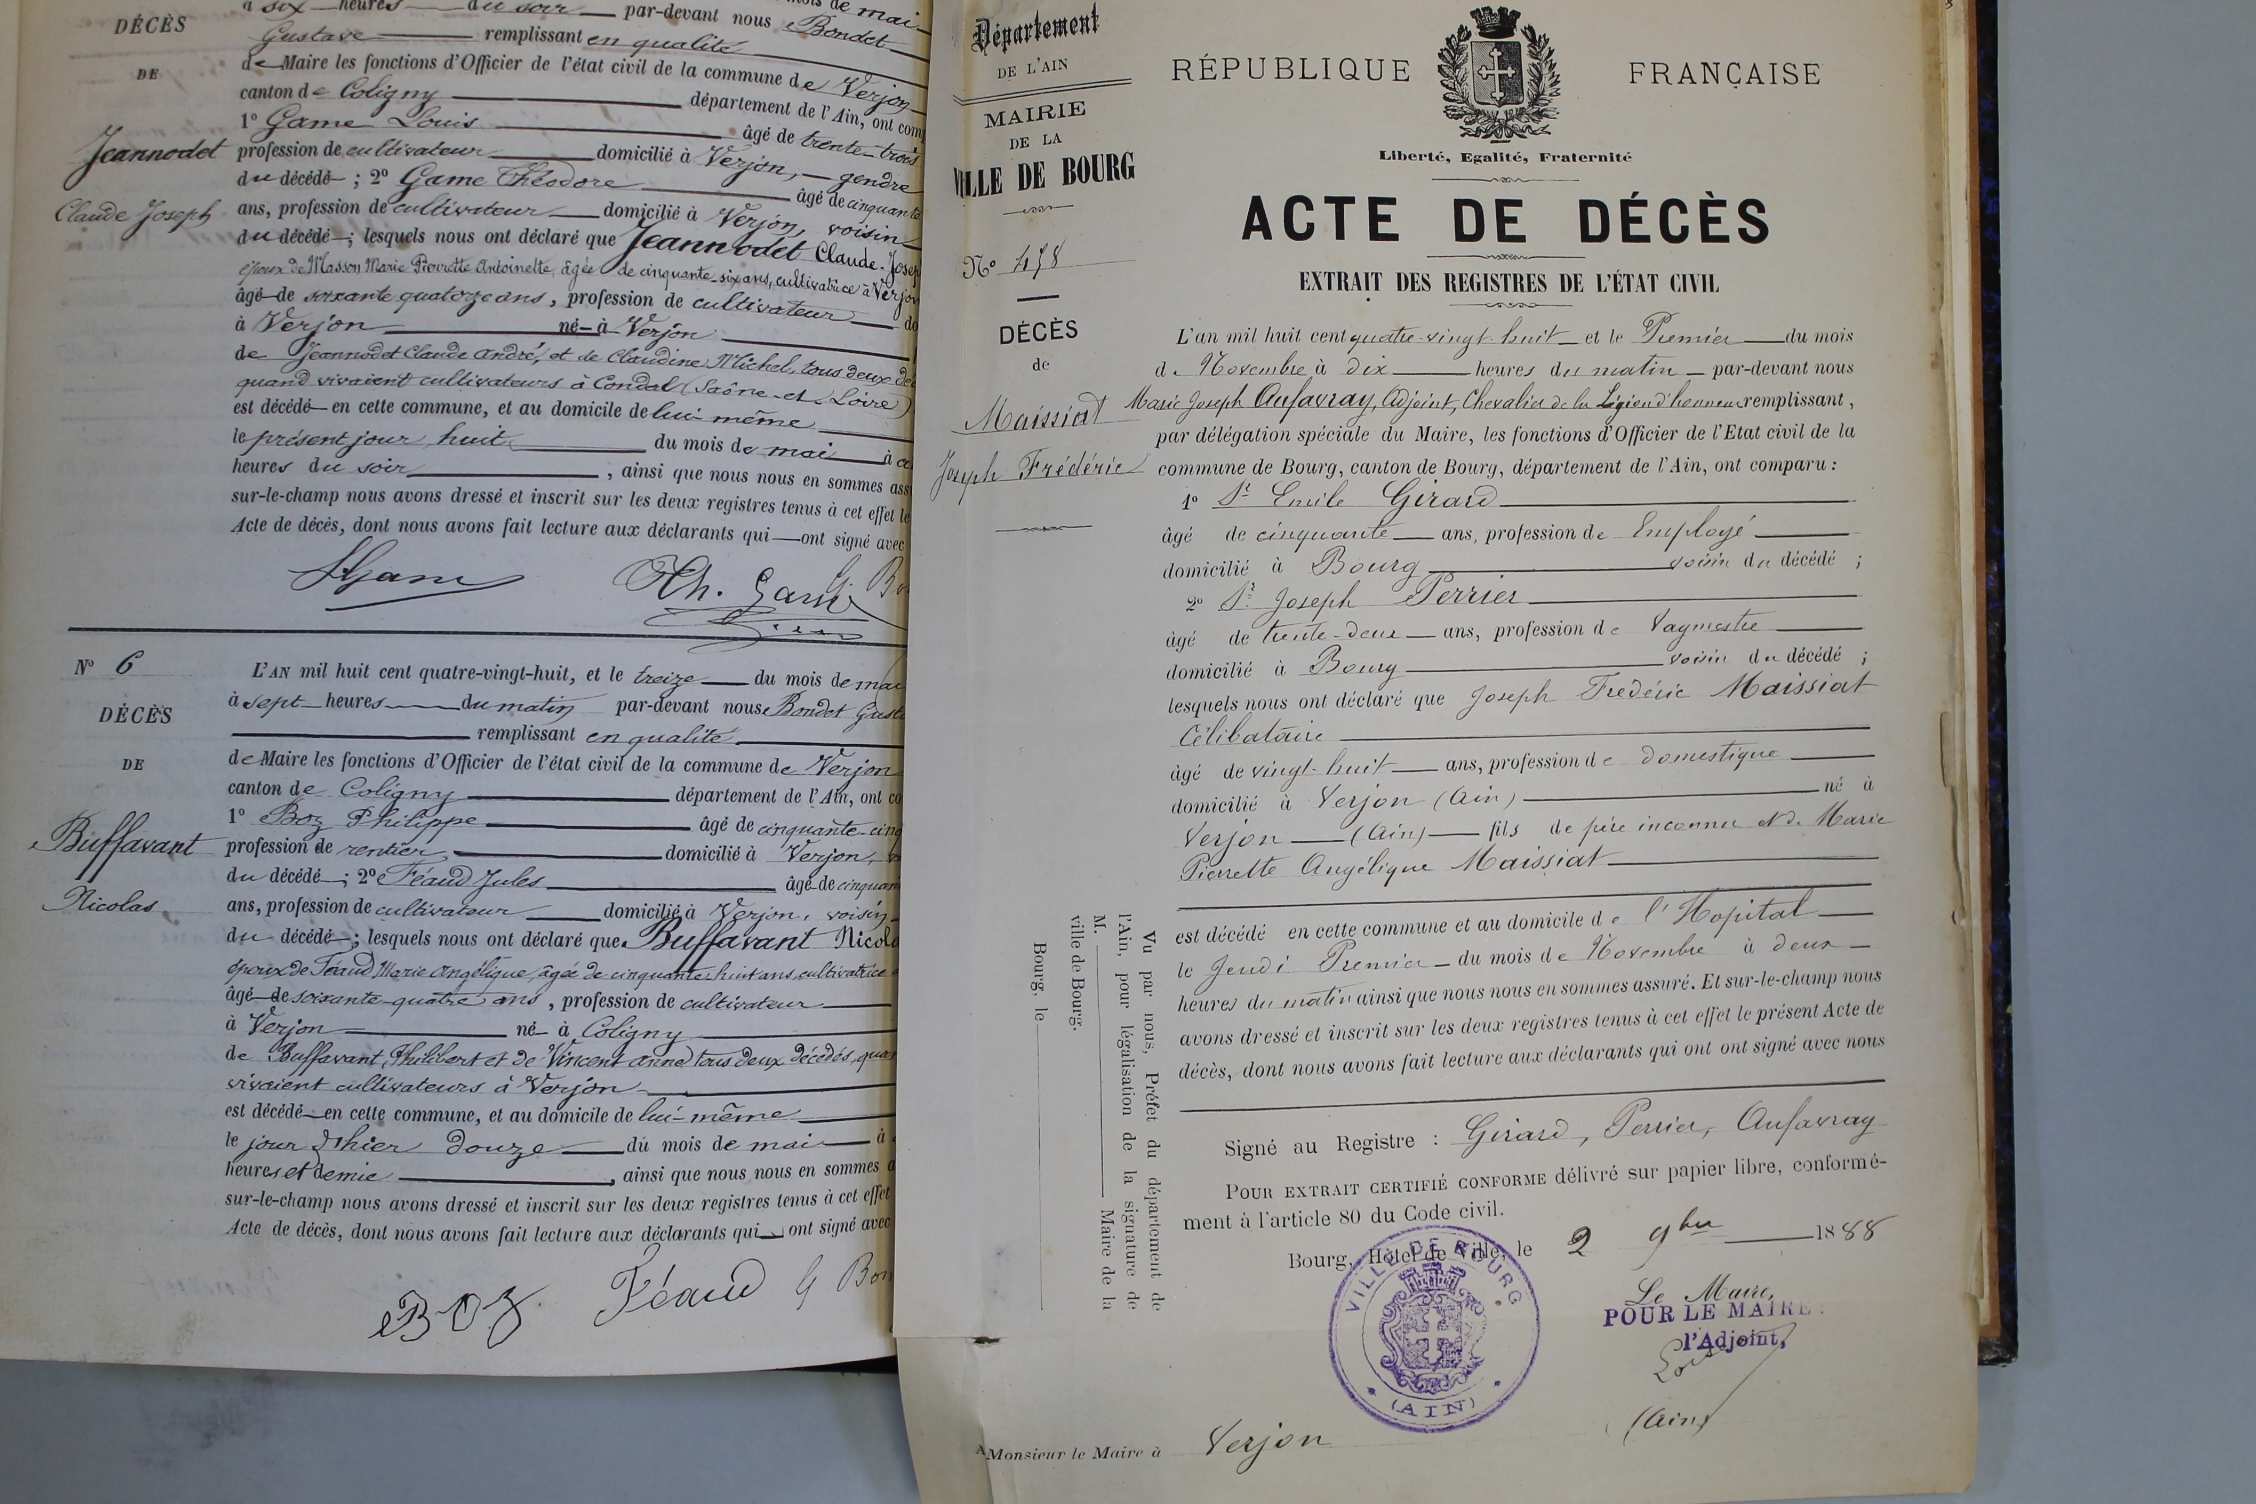 DÉCÈS
DE
Jeannodet
Claude Joseph
à six heures du soir par-devant nous Bondet
Gustave remplissant en qualité
de Maire les fonctions d'Officier de l'état civil de la commune de Verjon
canton de Coligny département de l'Ain, ont com
1º Game Louis âgé de trente-trois
profession de cultivateur domicilié à Verjon, gendre
du décédé ; 2º Game Théodore âgé de cinquante
ans, profession de cultivateur domicilié à Verjon, voisin
du décédé ; lesquels nous ont déclaré que Jeannodet Claude-Josep
époux de Masson Marie Pierrette Antoinette, âgée de cinquante-six ans, cultivatrice à Verjon
âgé de soixante quatorze ans, profession de cultivateur do
à Verjon né à Verjon
de Jeannodet Claude André, et de Claudine Michel, tous deux dé
quand vivaient cultivateurs à Condal (Saône-et-Loire)
est décédé en cette commune, et au domicile de lui-même
le présent jour huit du mois de mai à c
heures du soir, ainsi que nous nous en sommes ass
sur-le-champ nous avons dressé et inscrit sur les deux registres tenus à cet effet le
Acte de décès, dont nous avons fait lecture aux déclarants qui ont signé avec
LGame Th. Game G. Bo
Nº 6
DÉCÈS
DE
Buffavant
Nicolas
L'AN mil huit cent quatre-vingt-huit, et le treize du mois de mai
à sept heures du matin par-devant nous Bondet Gust
remplissant en qualité
de Maire les fonctions d'Officier de l'état civil de la commune de Verjon
canton de Coligny département de l'Ain, ont co
1º Boz Philippe âgé de cinquante-cinq
profession de rentier domicilié à Verjon,
du décédé ; 2º Féaud Jules âgé de cinquan
ans, profession de cultivateur domicilié à Verjon, voisin
du décédé ; lesquels nous ont déclaré que Buffavant Nicola
époux de Féaud Marie Angélique, âgée de cinquante-huit ans, cultivatrice
âgé de soixante-quatre ans, profession de cultivateur
à Verjon né à Coligny
de Buffavant, Philibert et de Vincent Anne tous deux décédés, quan
vivaient cultivateurs à Verjon
est décédé en cette commune, et au domicile de lui-même
le jour d'hier douze du mois de mai à
heures et demie, ainsi que nous nous en sommes a
sur-le-champ nous avons dressé et inscrit sur les deux registres tenus à cet effet
Acte de décès, dont nous avons fait lecture aux déclarants qui ont signé avec
BOZ Féaud G Bon
Département
DE L'AIN
MAIRIE
DE LA
VILLE DE BOURG
Nº 478
DÉCÈS
de
Maissiat
Joseph Frédéric
Vu par nous, Préfet du département de
l'Ain, pour légalisation de la signature de
M. Maire de la
ville de Bourg.
Bourg, le
RÉPUBLIQUE FRANÇAISE
Liberté, Egalité, Fraternité
ACTE DE DÉCÈS
EXTRAIT DES REGISTRES DE L'ÉTAT CIVIL
L'an mil huit cent quatre-vingt-huit et le Premier du mois
de Novembre à dix heures du matin par-devant nous
Marie Joseph Aufavray, Adjoint, Chevalier de la Légion d'honneur remplissant,
par délégation spéciale du Maire, les fonctions d'Officier de l'Etat civil de la
commune de Bourg, canton de Bourg, département de l'Ain, ont comparu :
1º Sr Emile Girard
âgé de cinquante ans, profession de Employé
domicilié à Bourg voisin du décédé ;
2º Sr Joseph Perrier
âgé de trente-deux ans, profession de Vagmestre
domicilié à Bourg voisin du décédé ;
lesquels nous ont déclaré que Joseph Frédéric Maissiat
Célibataire
âgé de vingt-huit ans, profession de domestique
domicilié à Verjon (Ain) né à
Verjon (Ain) fils de père inconnu et de Marie
Pierrette Angélique Maissiat
est décédé en cette commune et au domicile de l'Hopital
le Jeudi Premier du mois de Novembre à deux
heures du matin ainsi que nous nous en sommes assuré. Et sur-le-champ nous
avons dressé et inscrit sur les deux registres tenus à cet effet le présent Acte de
décès, dont nous avons fait lecture aux déclarants qui ont ont signé avec nous
Signé au Registre : Girard, Perrier, Aufavray
POUR EXTRAIT CERTIFIÉ CONFORME délivré sur papier libre, conformé-
ment à l'article 80 du Code civil.
Bourg, Hôtel de Ville, le 2 9bre 1888
Le Maire,
POUR LE MAIRE :
l'Adjoint,
VILLE DE BOURG
(AIN)
(Ain)
A Monsieur le Maire à Verjon